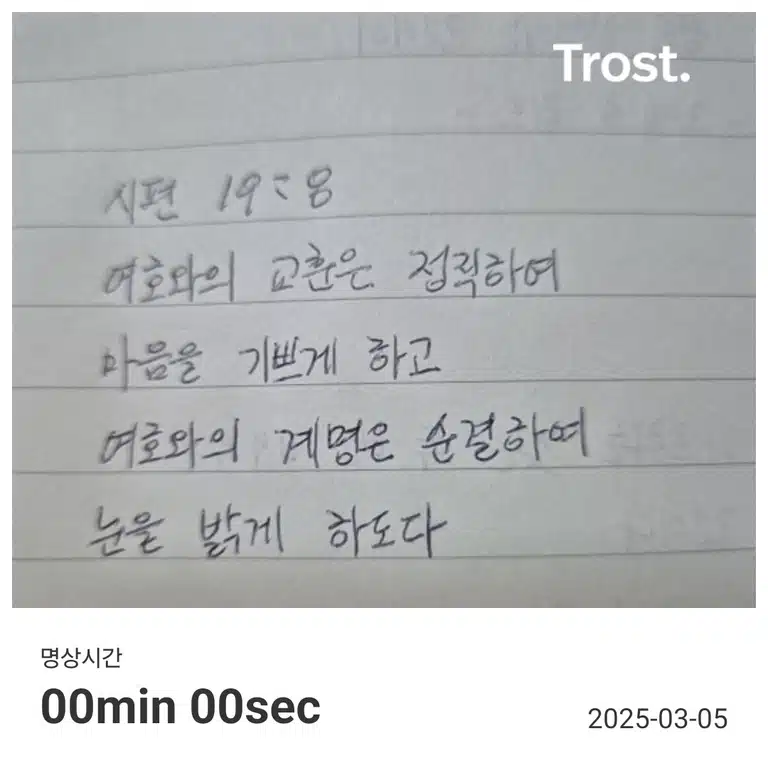 Trost.
시편 19:8
여호와의 교훈은 정직하여
마음을 기쁘게 하고
여호와의 계명은 순결하여
눈을 밝게 하도다
명상시간
00min 00sec
2025-03-05